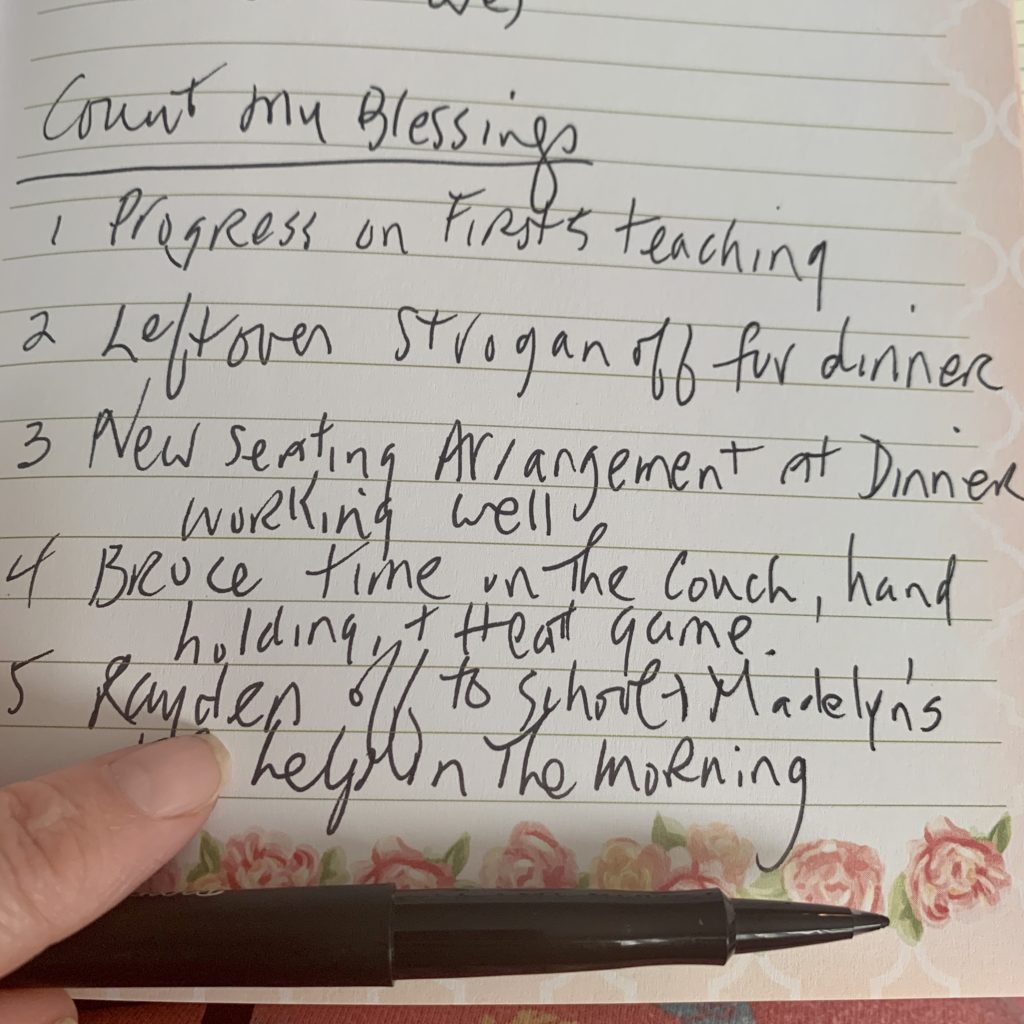 Count my Blessings
1 Progress on Firsts teaching
2 Leftover Stroganoff for dinner
3 New seating Arrangement at Dinner
working well
4 Bruce time on the Couch, hand
holding, + Heat game.
5 Rayden off to school + Madelyn's
help in The morning